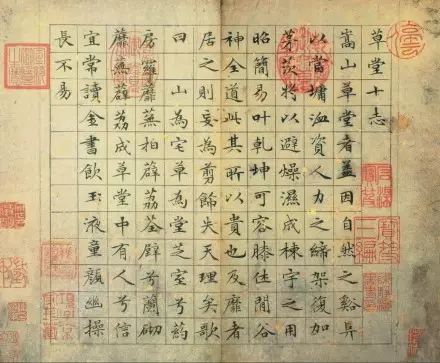 草堂十志
嵩山草堂者盖因自然之谿阜
以當墉洫資人力之締架復加
茅茨將以避燥濕成棟宇之用
昭簡易叶乾坤可容膝休閒谷
神全道此其所以貴也及靡者
居之則妄為剪飾失天理矣歌
曰山為宅草為堂芝室兮葯
房羅蘼蕪相辟荔荃壁兮蘭砌
蘼蕪薜荔成草堂中有人兮信
宜常讀金書飲玉液童顏幽操
長不易